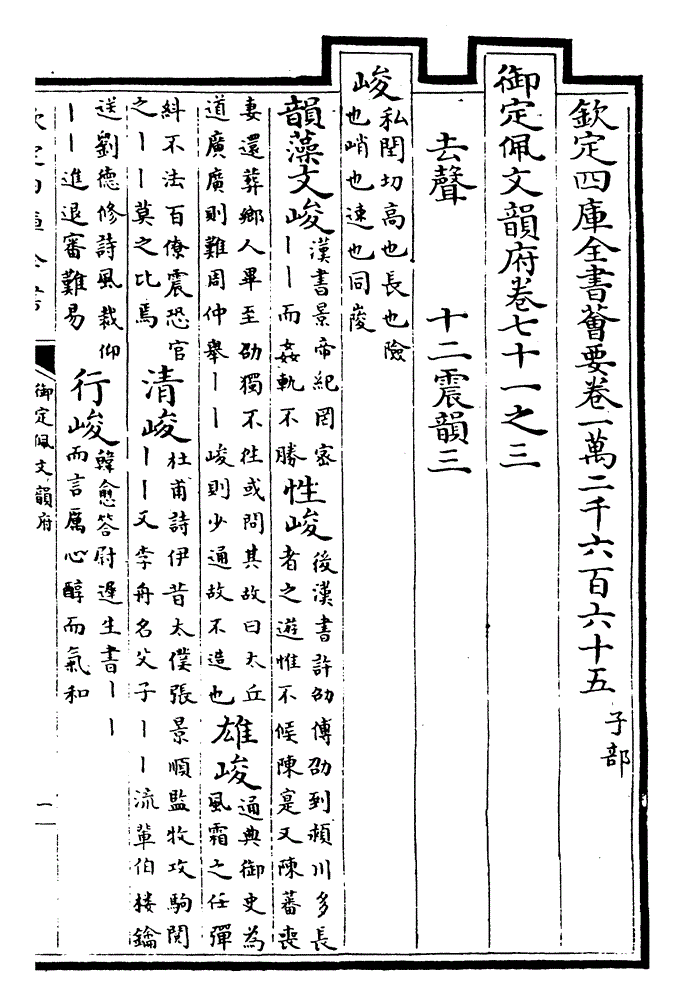 欽定四庫全書薈要卷一萬二千六百六十五 子部
御定佩文韻府卷七十一之三
去聲 十二震韻三
峻
私閏切高也長也險
也峭也速也同
韻藻文峻
漢書景帝紀罔密
丨丨而姦軌不勝
性峻
後漢書許劭傳劭到潁川多長
者之遊惟不候陳寔又陳蕃喪
妻還葬鄉人畢至劭獨不往或問其故曰太丘
道廣廣則難周仲舉丨丨峻則少通故不造也
雄峻
通典御史為
風霜之任彈
糾不法百僚震恐官
之丨丨莫之比焉
清峻
杜甫詩伊昔太僕張景順監牧攻駒閱
丨丨又李舟名父子丨丨流輩伯樓鑰
送劉德修詩風裁仰
丨丨進退審難易
行峻
韓愈答尉遲生書丨丨
而言厲心醇而氣和
御定佩文韻府
一